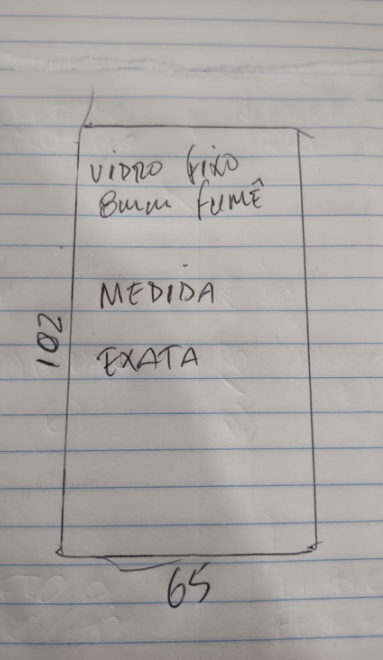 VIDRO fixo
8mm FUMÊ
MEDIDA
102
EXATA
65